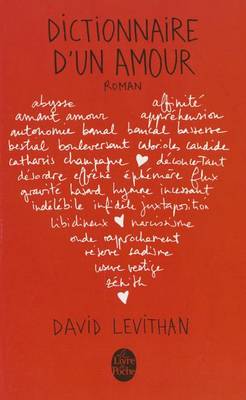 DICTIONNAIRE
D'UN AMOUR
ROMAN
abysse affinité
amant amour appréhension
autonomie banal bancal basserse
bestial bouleversant cabrioles candide
catharsis champagne déconcertant
désordre effréné éphémère flux
gravité hasard hymne incessant
indélébile infidèle juxtaposition
libidineux narcissisme
onde rapprochement
réservé sadisme
usure vestige
zénith
DAVID LEVITHAN
Le Livre
de
Poche